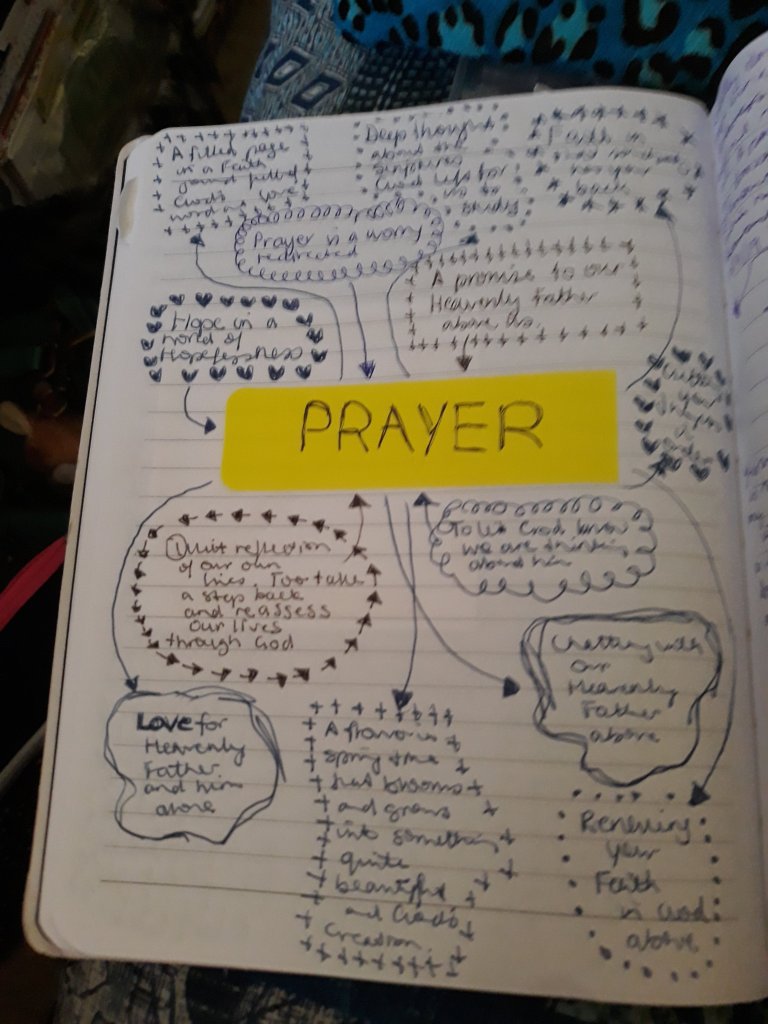 A filled page
in a Faith
journal filled of
God's
word
Deep thought
about the
scriptures
God left for
us to
study
Faith in
has your
back
Prayer is a worry
redirected
A promise to our
Heavenly Father
above us.
Hope in a
world of
Hopelessness
your
in
PRAYER
Quiet reflection
of our own
lives. Too take
a step back
and reassess
our lives
through God
To let God know
we are thinking
about him
Chatting with
our
Heavenly
Father
above
Love for
Heavenly
Father
and him
alone
A
spring time
that blooms
and grows
into something
quite
beautiful
and God's
Creation.
Renewing
your
Faith
in God
above